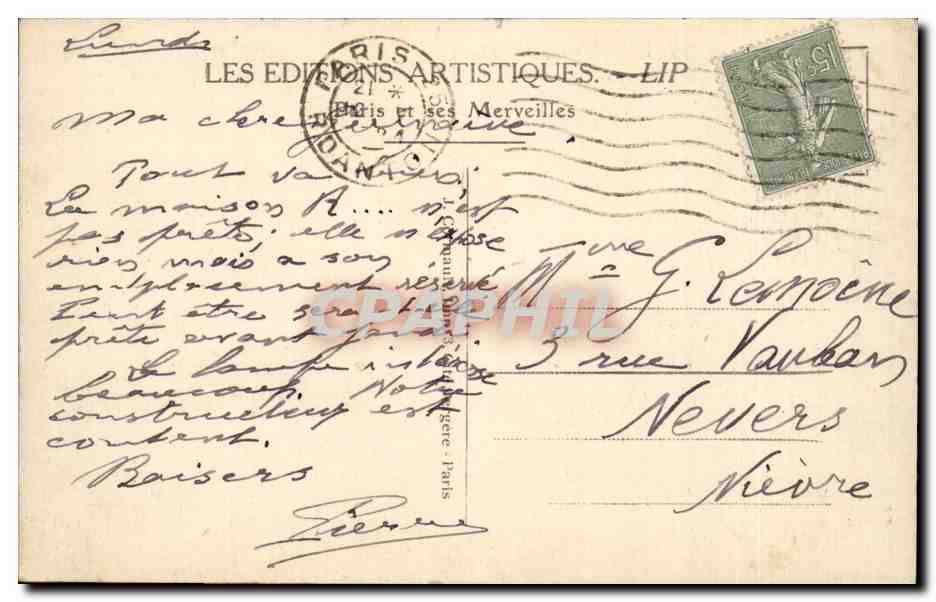 Lundi
LES EDITIONS ARTISTIQUES. - LIP
Paris et ses Merveilles
PARIS
R. DANTON
21
15
Ma chère Germaine
Tout va
La maison R.... n'est
pas prête, elle n'expose
rien mais a son
emplacement réservé
Peut être sera-t-elle
prête avant jeudi
La lampe intéresse
beaucoup. Notre
constructeur est
content.
Baisers
Pierre
Mme G. Lemoine
3 rue Vauban
Nevers
Nièvre
bergère - Paris
CPAPHIL